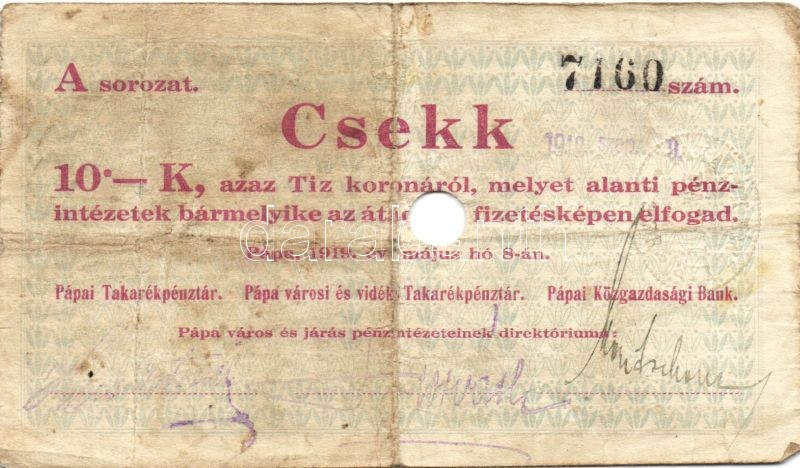 A sorozat. 7160 szám.
Csekk
1919 szep. 9.
10·— K, azaz Tiz koronáról, melyet alanti pénz-
intézetek bármelyike az fizetésképen elfogad.
Pápa, 1919. év május hó 8-án.
Pápai Takarékpénztár. Pápa városi és vidéki Takarékpénztár. Pápai Közgazdasági Bank.
Pápa város és járás pénzintézeteinek direktóriuma:
darabanth